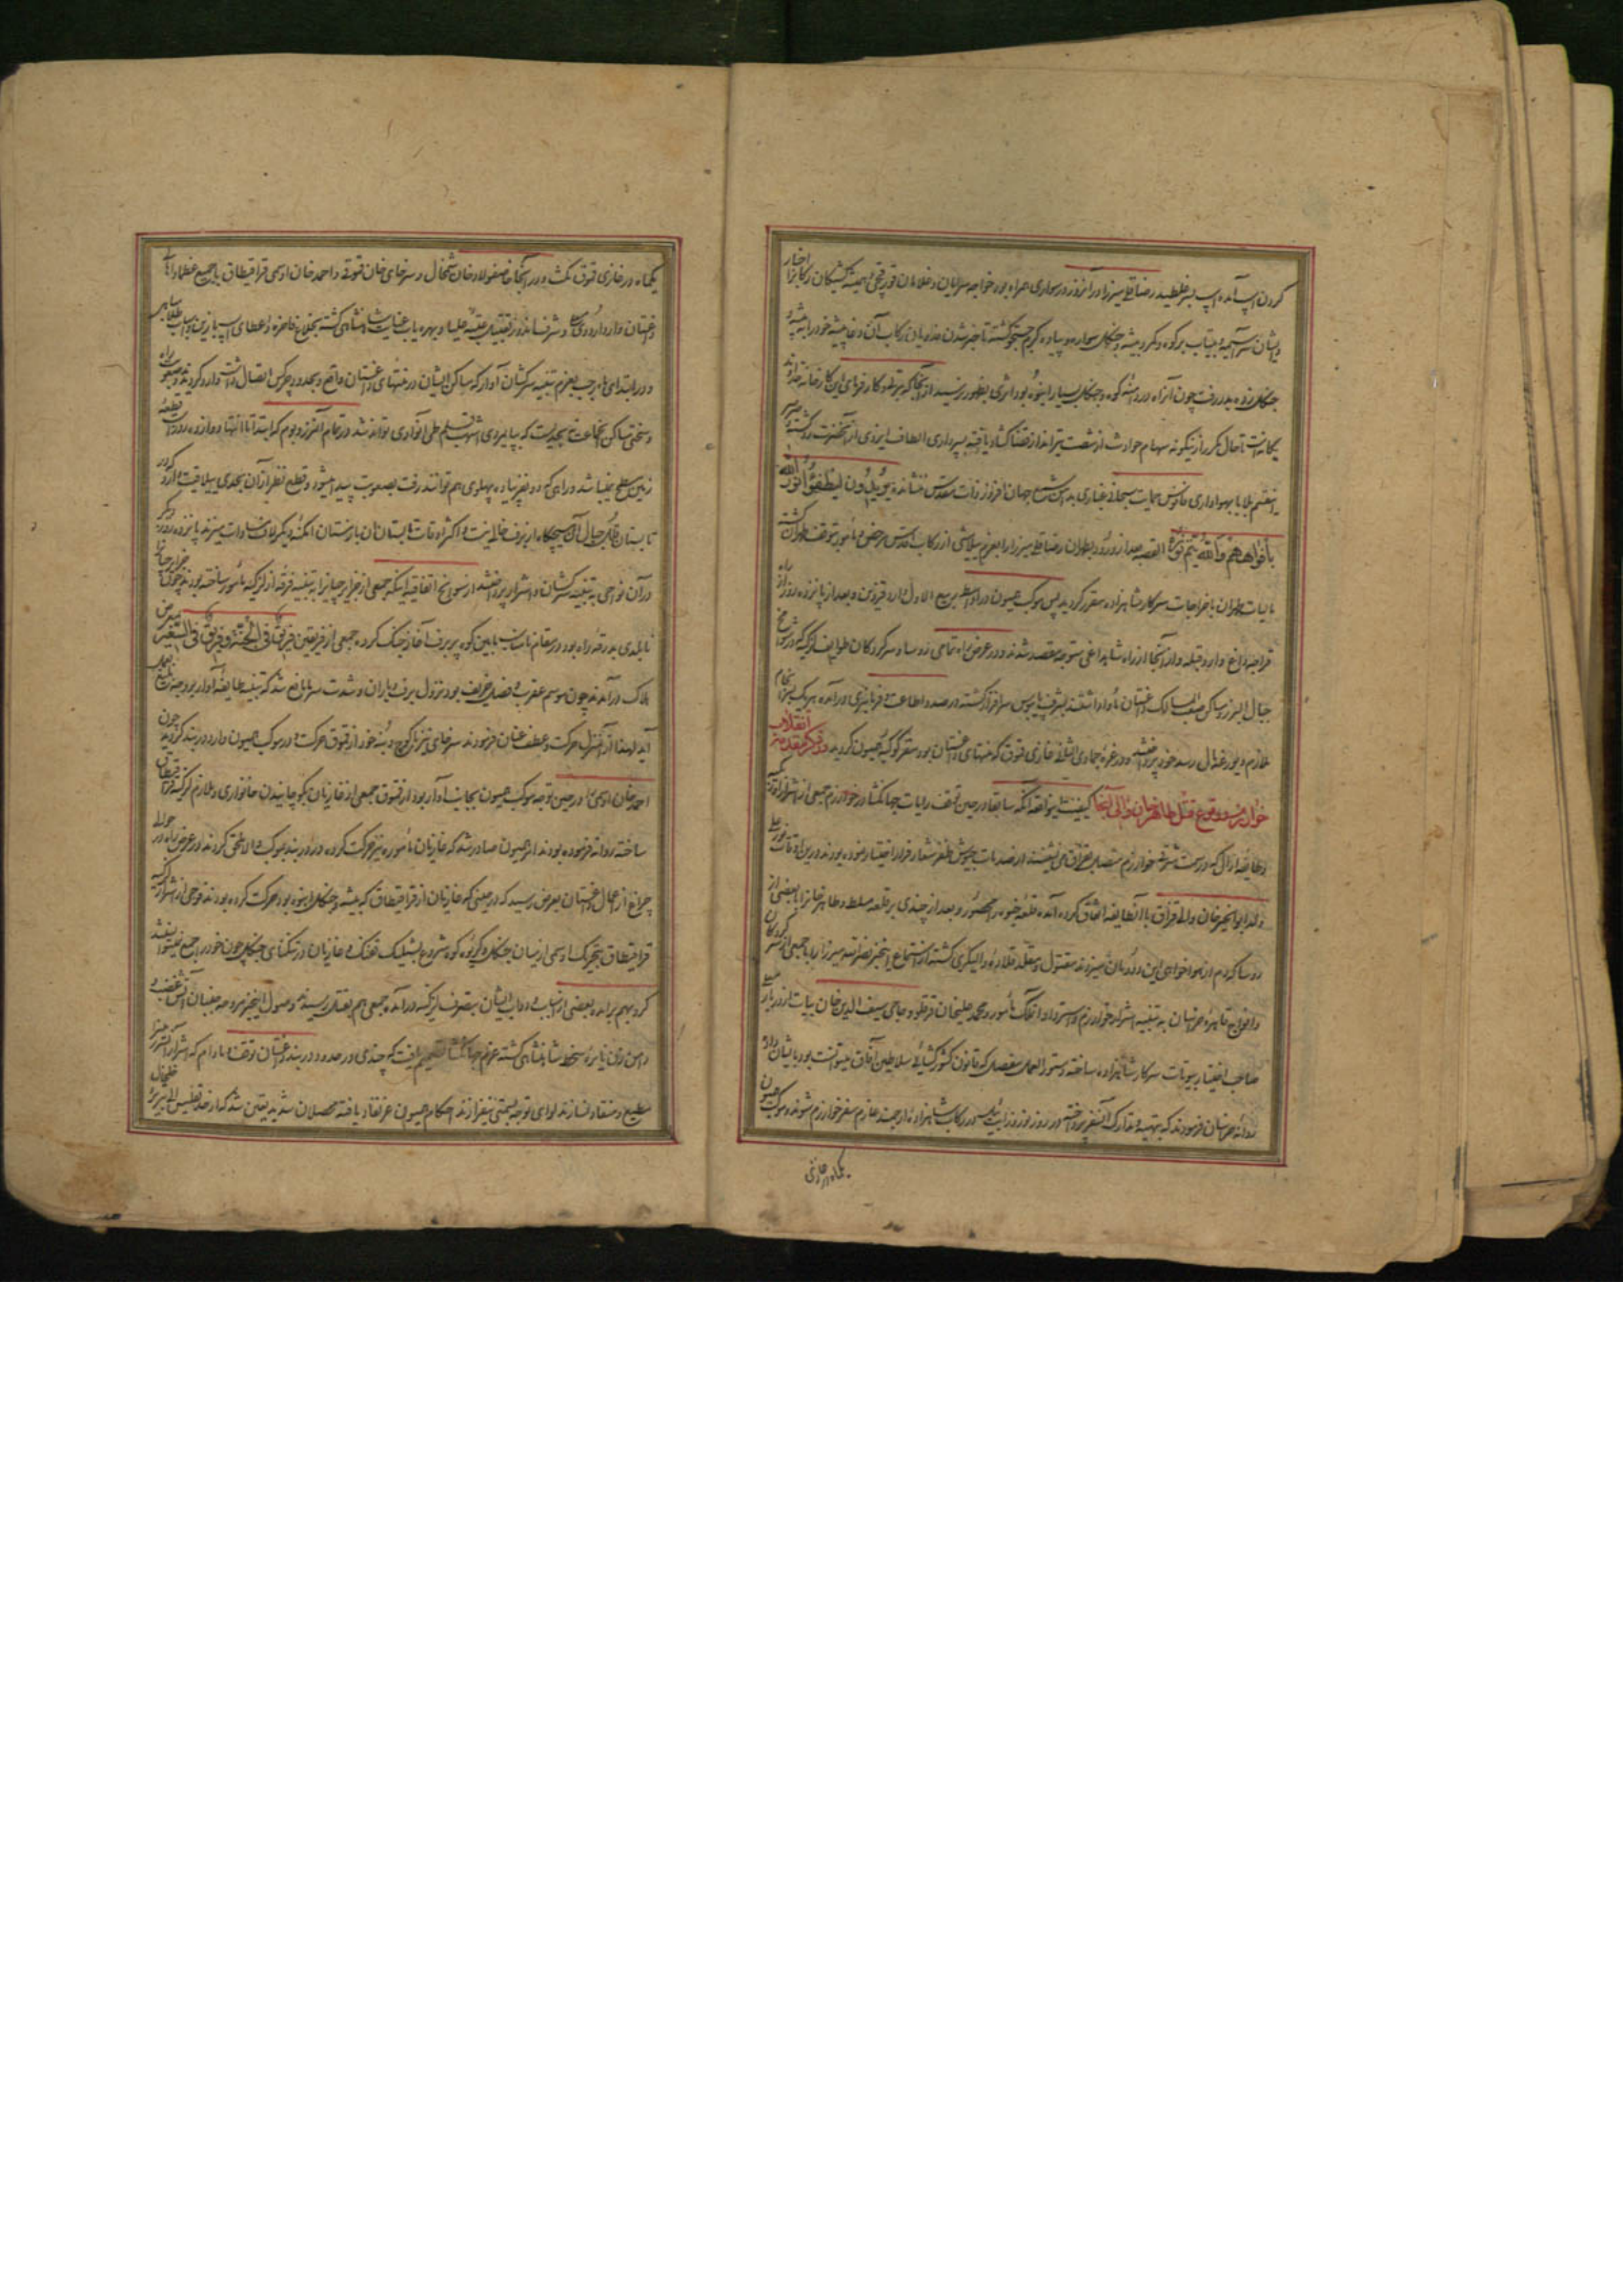 کردن اسب آمده اسب بسر غلطید رضاقلی میرزا در آنروز در سواری همراه بود خواجه سرایان و غلامان قورقچی و همیشه کشیکان رکابرا اخبار
و ایشان سرآسیمه و بیتاب بر کوه و کمر و بیشه و جنکل سواره و پیاده کرم جستجو کشته تا خبر شدن خدیو آن رکاب آن دغا پیشه خود را به بیشه
جنکل زده بدر رفت چون آنراه در دامنه کوه و جنکل بسیار انبوه بود اثری بظهور نرسید از آنجا که پرتو کارفرمای این کارخانه خداوند
یکانه است تا حال مکرر ازینکونه سهام حوادث از شست تیرانداز قضا کشاد یافته بسپرداری الطاف ایزدی از آنحضرت رد کشته و صرصر
اینقسم بلایا بهواداری فانوس حمایت سبحانی غباری بدامن شمع جهان افروز ذات مقدس ننشانده یریدون لیطفؤا نور الله
بأفواههم والله متم نوره القصه بعد از ورود بطهران رضاقلی میرزا را بعزم ییلامشی از رکاب اقدس مرخص و مأمور بتوقف طهران کشته
مالیات طهران باخراجات سرکار شاهزاده مقرر کردید پس موکب همیون در اواسط ربیع الاول وارد قزوین و بعد از پانزده روز از راه
قراجه داغ وارد قبله و از آنجا از راه شاه داغی متوجه مقصد شدند و در عرض راه تمامی رؤسا و سرکردکان طوایف لزکیه که در شوامخ
جبال البرز و مساکن صعب المسالک داغستان مأوا داشتند بشرف پابوس سرافراز کشته در صدد اطاعت و فرمانبری درآمده هر یک بسرانجام
ملازم و یورغه مال رسد خود پرداختند و در غره جمادی الثانی غازی قموق که منتهای داغستان بود مقر کوکبه همیون کردید در ذکر مقدمه انقلاب
خوارزم و وقوع قتل طاهرخان والی آنجا کیفیت این واقعه آنکه سابقا در حین توقف رایات جهانکشا در خوارزم جمعی از اشرار اوزبکیه
و طایفه ارالی که در سمت شرقی خوارزم متصل بقزاق می نشینند از صدمات جیوش ظفر شعار فرار اختیار نموده بودند درین اوقات نورعلی
ولد ابوالخیرخان والی قزاق با آنطایفه اتفاق کرده آمده قلعه خیوه را محصور و بعد از چندی بر قلعه مسلط و طاهرخانرا با بعضی از
رؤسا که دم از هواخواهی این دودمان میزدند مقتول و متقلد قلاده والیکری کشته از استماع اینخبر نصرالله میرزا را با جمعی از سرکردکان
و افواج قاهره خراسان به تنبیه اشرار خوارزم و استرداد آن ملک مأمور و محمدعلیخان قرقلو و حاجی سیف الدین خان بیات از دربار معلی
صاحب اختیار بیوتات سرکار شاهزاده ساخته دستورالعمل مفصلی که قانون کشورکشایی سلاطین آفاق میتوانست بود بایشان داده
روانه خراسان فرمودند که بتهیه و تدارک آنسفر پرداخته در روز نوروز ایت ئیل در رکاب شاهزاده ارجمند عازم سفر خوارزم شوند و موکب همیون
یکماه در غازی
یکماه در غازی قموق مکث و در آنجا خاصفولاد خان شمخال و سرخای خان قموقی و احمد خان اوسمی قراقیطاق با جمیع عظما و اهالی
داغستان وارد اردوی معلی و شرف اندوز تقبیل عتبه علیا و بهره یاب عنایت شاهنشاهی کشته بخلاع فاخره و اعطای اسب با زین و یراق طلا مباهی
و در ابتدای ماه رجب بعزم تنبیه سرکشان آوار که مساکن ایشان در منتهای داغستان واقع و بحدود چرکس اتصال داشت وارد کردیدند و صعوبت راه
و سختی مساکن آنجماعت بحدیست که بپایمردی اشهب قلم طی آنوادی تواند شد در تمام آن مرز و بوم که ابتدا تا انتها دوازده روزه راه است قطعه
زمین مسطح نمیباشد و راهی که دو نفر پیاده پهلوی هم توانند رفت بصعوبت پیدا میشود و قطع نظر از آن بحدی ییلاقیت دارد که در
تابستان قلل جبال آن هیچکاه از برف خالی نیست و اکثر اوقات تابستان آن با زمستان امکنه دیکر لاف مساوات میزند پانزده روز دیکر
در آن نواحی به تنبیه سرکشان و اشرار پرداختند از سوانح اتفاقیه اینکه جمعی از جزایرچیانرا به تنبیه فرقه از لزکیه مأمور ساخته بودند چون جزایرچیان
نابلدی بدرقه راه بود در مقام نامناسب مابین کوه پر برف آغاز جنک کرده جمعی از فریقین فریق فی الجنة و فریق فی السعیر بمعرض
هلاک درآمدند چون موسم عقرب و فصل خریف بود نزول برف و باران و شدت سرما مانع شد که تنبیه طایفه آوار بر وجه دلخواه بعمل
آید لهذا از آنمنزل حرکت و عطف عنان فرمودند سرخای نیز با کوچ و بنه خود از قموق حرکت و در موکب همیون وارد دربند کردید چون
احمد خان اوسمی را در حین توجه موکب همیون بجانب آوار بود از قموق جمعی از غازیان بکوچانیدن خانواری و ملازم لزکیه قراقیطاق
ساخته روانه فرموده بودند امر همیون صادر شد که غازیان مأموره نیز حرکت کرده در دربند بموکب والا ملحق کردند در عرض راه در حوالی
چراغ از اعمال داغستان بعرض رسید که در حینی که غازیان از قراقیطاق که بیشه و جنکل انبوه بود حرکت کرده بودند فوجی از اشرار لزکیه
قراقیطاق بتحریک اوسمی از میان جنکل و کریوه کوه شروع بشلیک تفنک و غازیان در تنکنای جنکل چون خود را جمع نمیتوانستند
کرد بهم برآمده بعضی از اسباب و دواب ایشان بتصرف لزکیه درآمده جمعی هم بقتل رسیدند وصول اینخبر مروحه جنبان آتش غضب و
دامن زن نایره سخط شاهنشاهی کشته عزم جهانکشا تصمیم یافت که چندی در حدود دربند و داغستان توقف و مادام که اشرار آنمرز را
مطیع و منقاد نسازند لوای توجه بسمتی نیفرازند احکام همیون عز نفاذ یافته محصلان شدید تعین شد که از حد تفلیس الی تبریز و خلخال